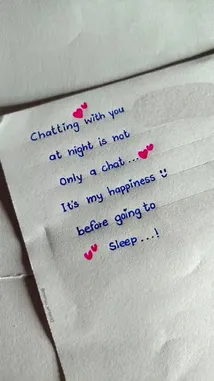 Chatting with you 💕
at night is not
Only a chat...💕
It's my happiness ☺
before going to
💕 Sleep...!